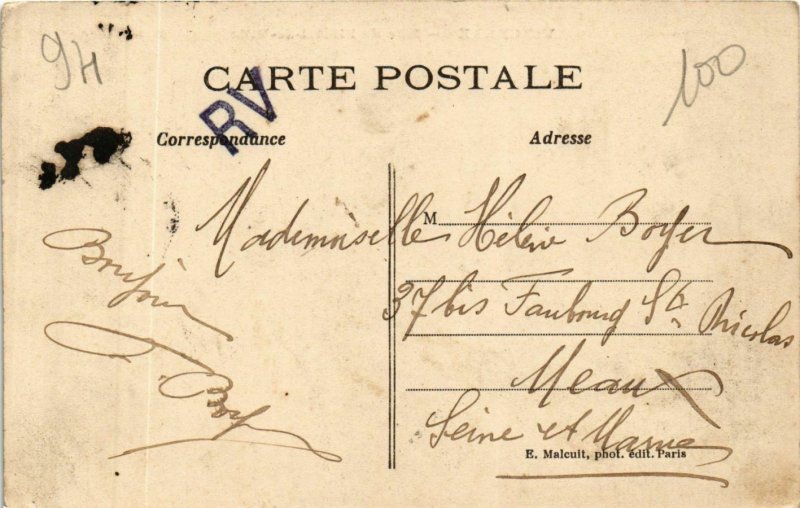 94
100
CARTE POSTALE
RV
Correspondance
Adresse
Bonjour
M Mademoiselle Hélène Boyer
37 bis Faubourg St. Nicolas
Meaux
Seine et Marne
E. Malcuit, phot. édit. Paris